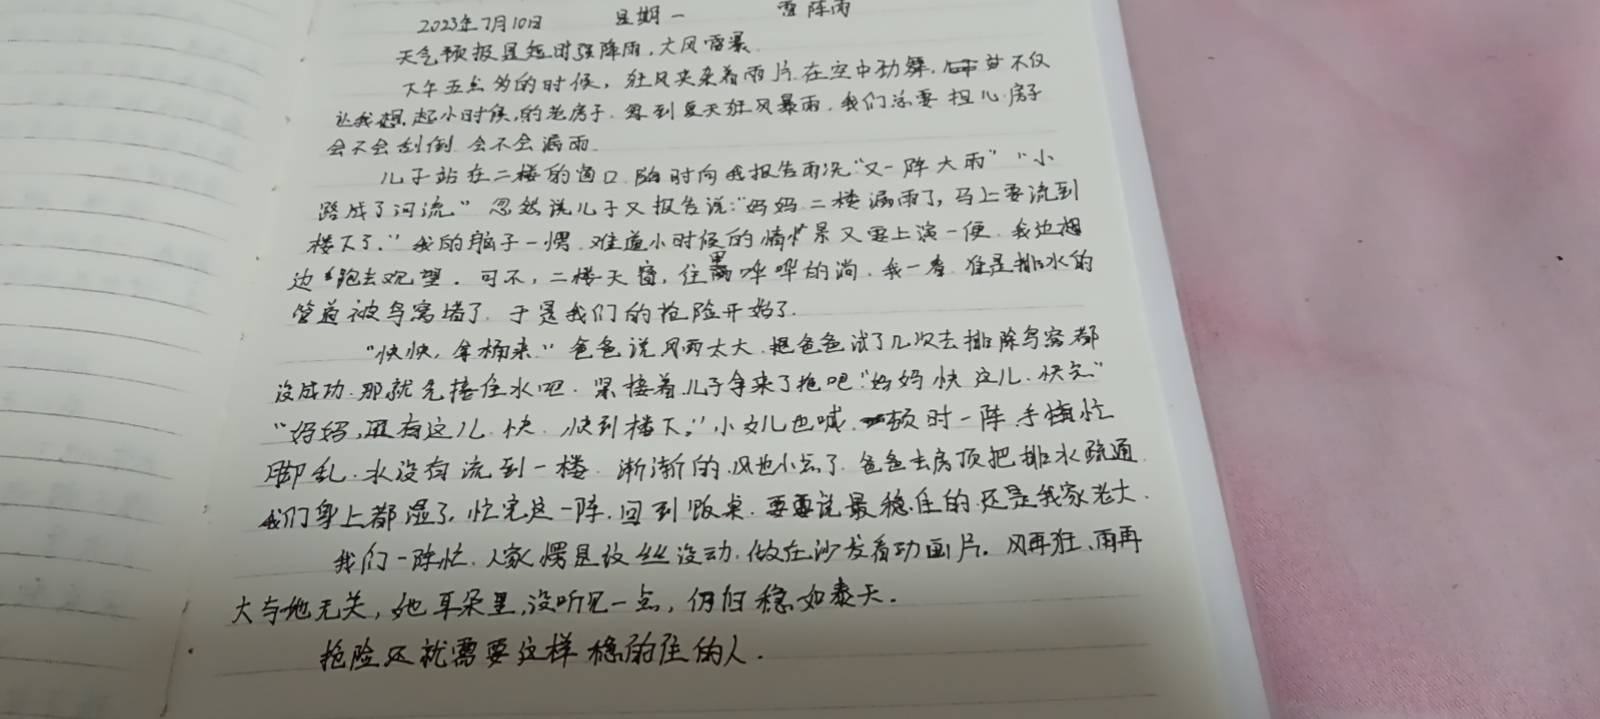 2023年7月10日 星期一 雷阵雨
天气预报是短时强降雨,大风雷暴.
下午五点多的时候,狂风夹杂着雨片在空中劲舞,不仅
让我想起小时候的老房子.每到夏天狂风暴雨.我们总要担心房子
会不会刮倒 会不会漏雨.
儿子站在二楼的窗口 随时向我报告雨况"又一阵大雨" "小
路成了河流" 忽然说儿子又报告说:"妈妈二楼漏雨了,马上要流到
楼下了." 我的脑子一愣.难道小时候的情景又要上演一便.我边想
边跑去观望.可不,二楼天窗,往里哗哗的淌.我一看 准是排水的
管道被鸟窝堵了.于是我们的抢险开始了.
"快快,拿桶来" 爸爸说风雨太大.爸爸试了几次去排除鸟窝都
没成功.那就先接住水吧.紧接着儿子拿来了拖吧"妈妈快这儿.快"
"妈妈,还有这儿 快.快到楼下." 小女儿也喊.顿时一阵手忙
脚乱.水没有流到一楼.渐渐的风也小点了.爸爸去房顶把排水疏通.
我们身上都湿了,忙完这一阵.回到饭桌.要说最稳住的还是我家老大.
我们一阵忙.人家愣是纹丝没动.做在沙发看动画片.风再狂、雨再
大与她无关,她耳朵里没听见一点,仍旧稳如泰天.
抢险还就需要这样稳的住的人.